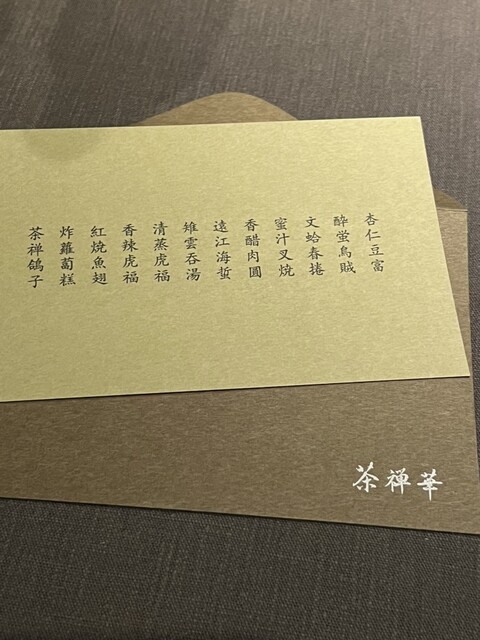 杏仁豆富
酔蛍烏賊
文蛤春捲
蜜汁叉焼
香醋肉圓
遠江海蜇
雉雲呑湯
清蒸虎福
香辣虎福
紅焼魚翅
炸蘿蔔糕
茶禅鴿子
茶禅華